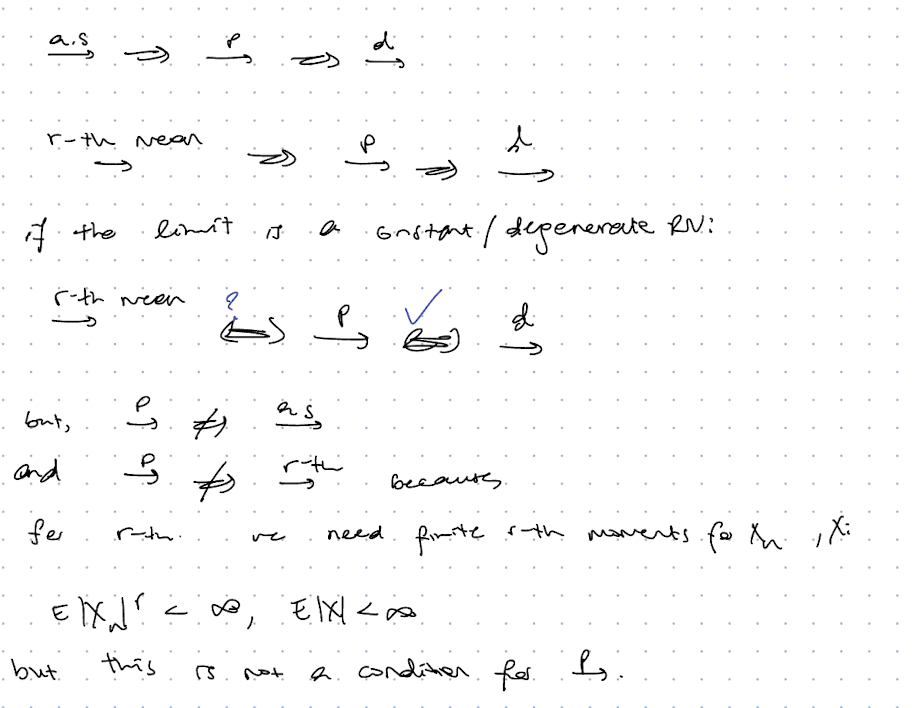 a.s → ⇒ P → ⇒ d →
r-th mean → ⇒ P → ⇒ d →
if the limit is a constant / degenerate RV:
r-th mean → ? ⇐⇒ P → ✓ ⇐⇒ d →
but, P → ⇏ a.s →
and P → ⇏ r-th → because
for r-th. we need finite r-th moments for Xn , X:
E|Xn|^r < ∞, E|X| < ∞
but this is not a condition for P →.